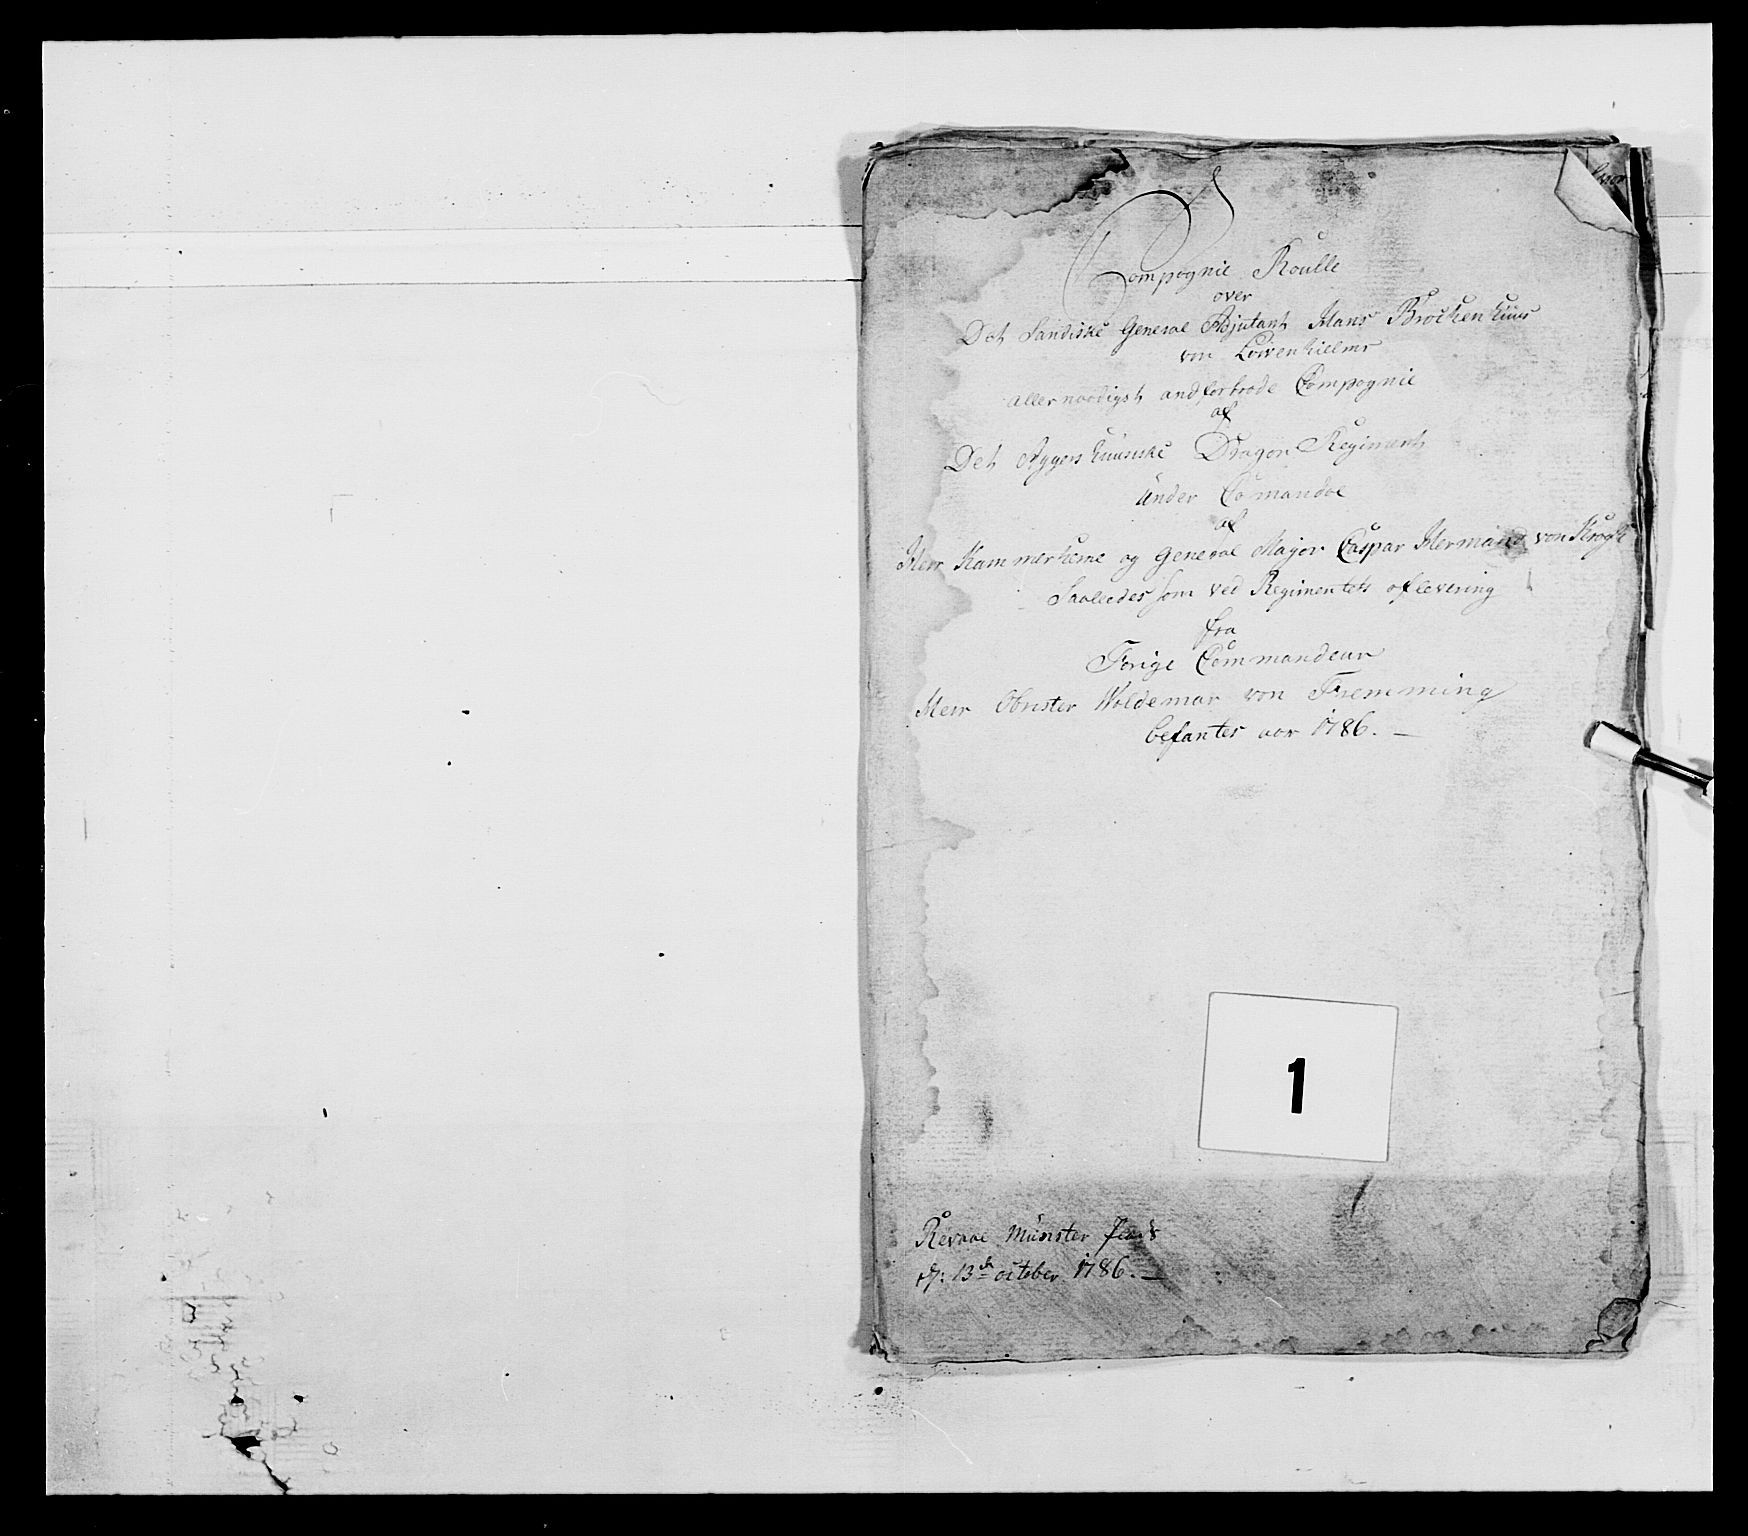 Compagnie Roulle
over
Det Landiske General Adjutant Hans Brockenhuus
von Löwenhielms
allernaadigst andfortrode Compagnie
af
Det Aggershuusiske Dragon Regiment
Under Comandoe
af
Herr Kammerherre og General Major Caspar Hermand von Krogh
Saaledes som ved Regimentets aflevering
fra
Forige Commandeur
Herr Obrister Woldemar von Fremming
befantes aar 1786. —
1
Revaae Münster Plads
d: 13de october 1786. —